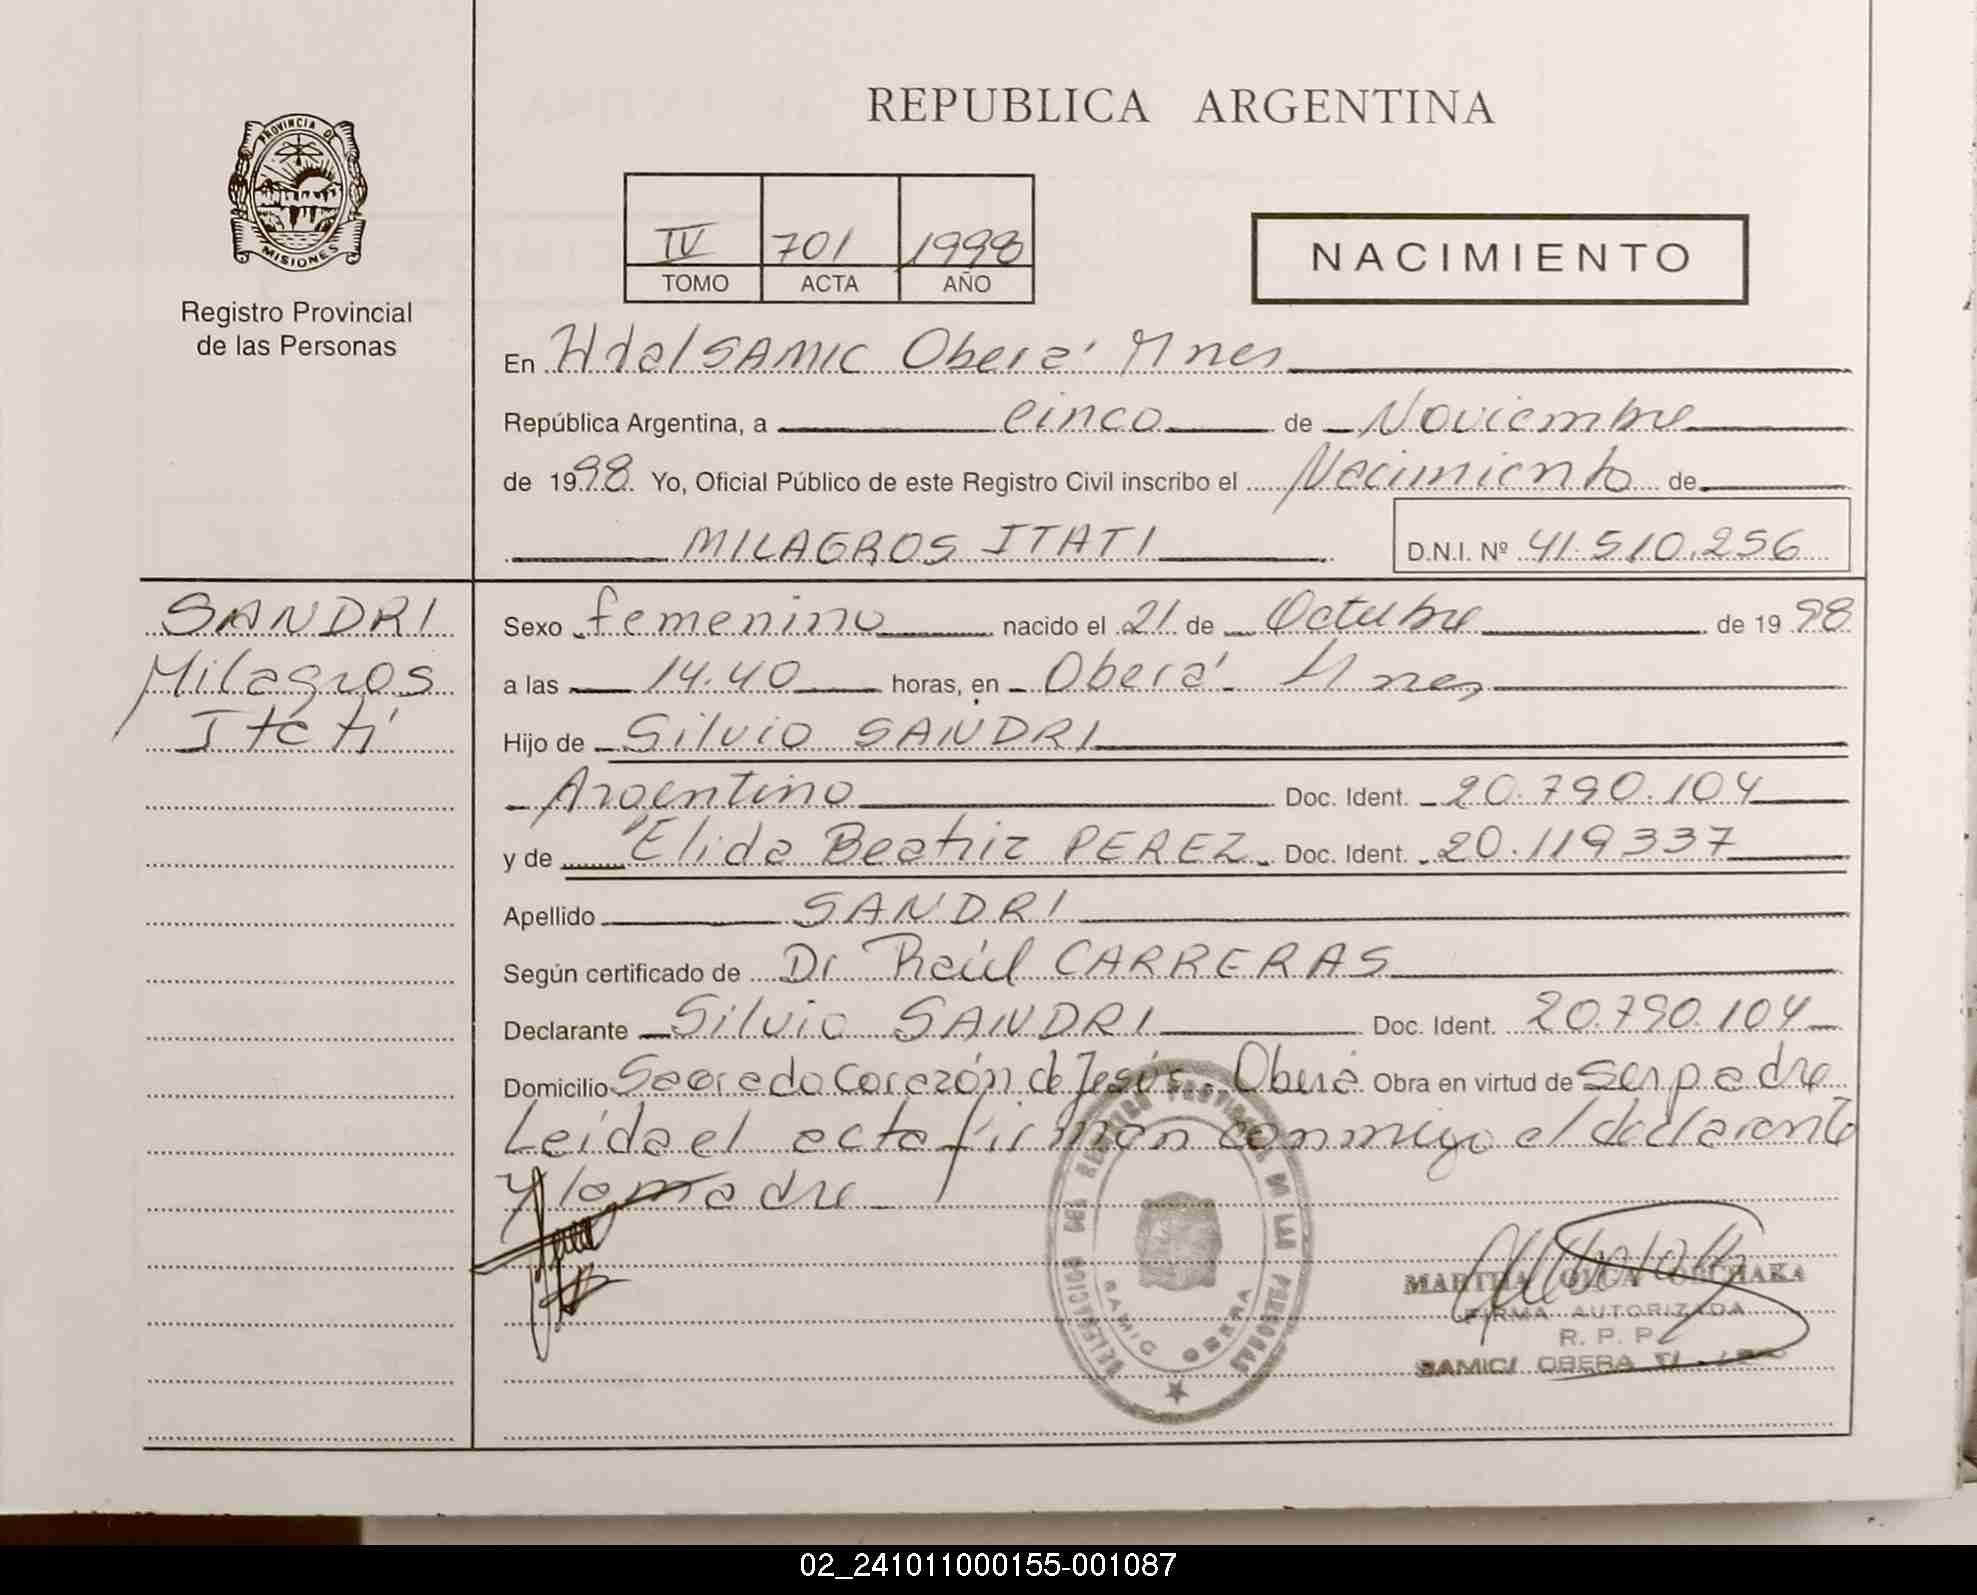 REPUBLICA ARGENTINA
PROVINCIA DE
MISIONES
Registro Provincial
de las Personas
IV 701 1998
TOMO ACTA AÑO
NACIMIENTO
En Htal SAMIC Oberá Mnes
República Argentina, a cinco de Noviembre
de 1998. Yo, Oficial Público de este Registro Civil inscribo el Nacimiento de
MILAGROS ITATI
D.N.I. Nº 41.510.256
SANDRI
Milagros
Itatí
Sexo femenino nacido el 21 de Octubre de 1998
a las 14.40 horas, en Oberá Mnes
Hijo de Silvio SANDRI
Argentino Doc. Ident. 20.790.104
y de Elida Beatriz PEREZ Doc. Ident. 20.119337
Apellido SANDRI
Según certificado de Dr Raúl CARRERAS
Declarante Silvio SANDRI Doc. Ident. 20.790.104
Domicilio Sagrado Corazón de Jesús - Oberá Obra en virtud de ser padre
Leída el acta firman conmigo el declarante
y la madre
DELEGACION DEL REGISTRO PROVINCIAL DE LAS PERSONAS
SAMIC OBERA
MARTHA OLGA
FIRMA AUTORIZADA
R. P. P.
SAMIC OBERA
02_241011000155-001087